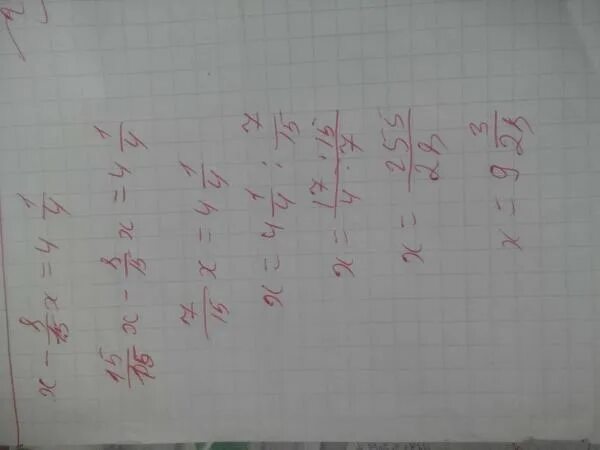 x - 8/15 x = 4 1/4
15/15 x - 8/15 x = 4 1/4
7/15 x = 4 1/4
x = 4 1/4 : 7/15
x = 17 · 15 / 4 · 7
x = 255/28
x = 9 3/28